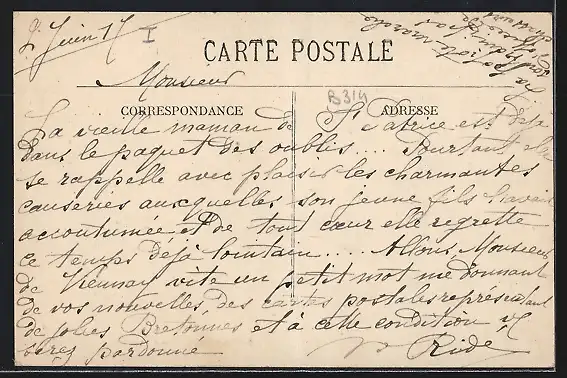 2 Juin 17
I
CARTE POSTALE
Monsieur
B314
CORRESPONDANCE ADRESSE
La vieille maman de St Patrice est déjà
dans le paquet des oublis.... Pourtant elle
se rappelle avec plaisir les charmantes
causeries auxquelles son jeune fils l'avait
accoutumée et de tout cœur elle regrette
ce temps déjà lointain..... Allons, Monsieur
de vite un petit mot me donnant
de vos nouvelles, des cartes postales représentant
de jolies Bretonnes et à cette condition vs
serez pardonné